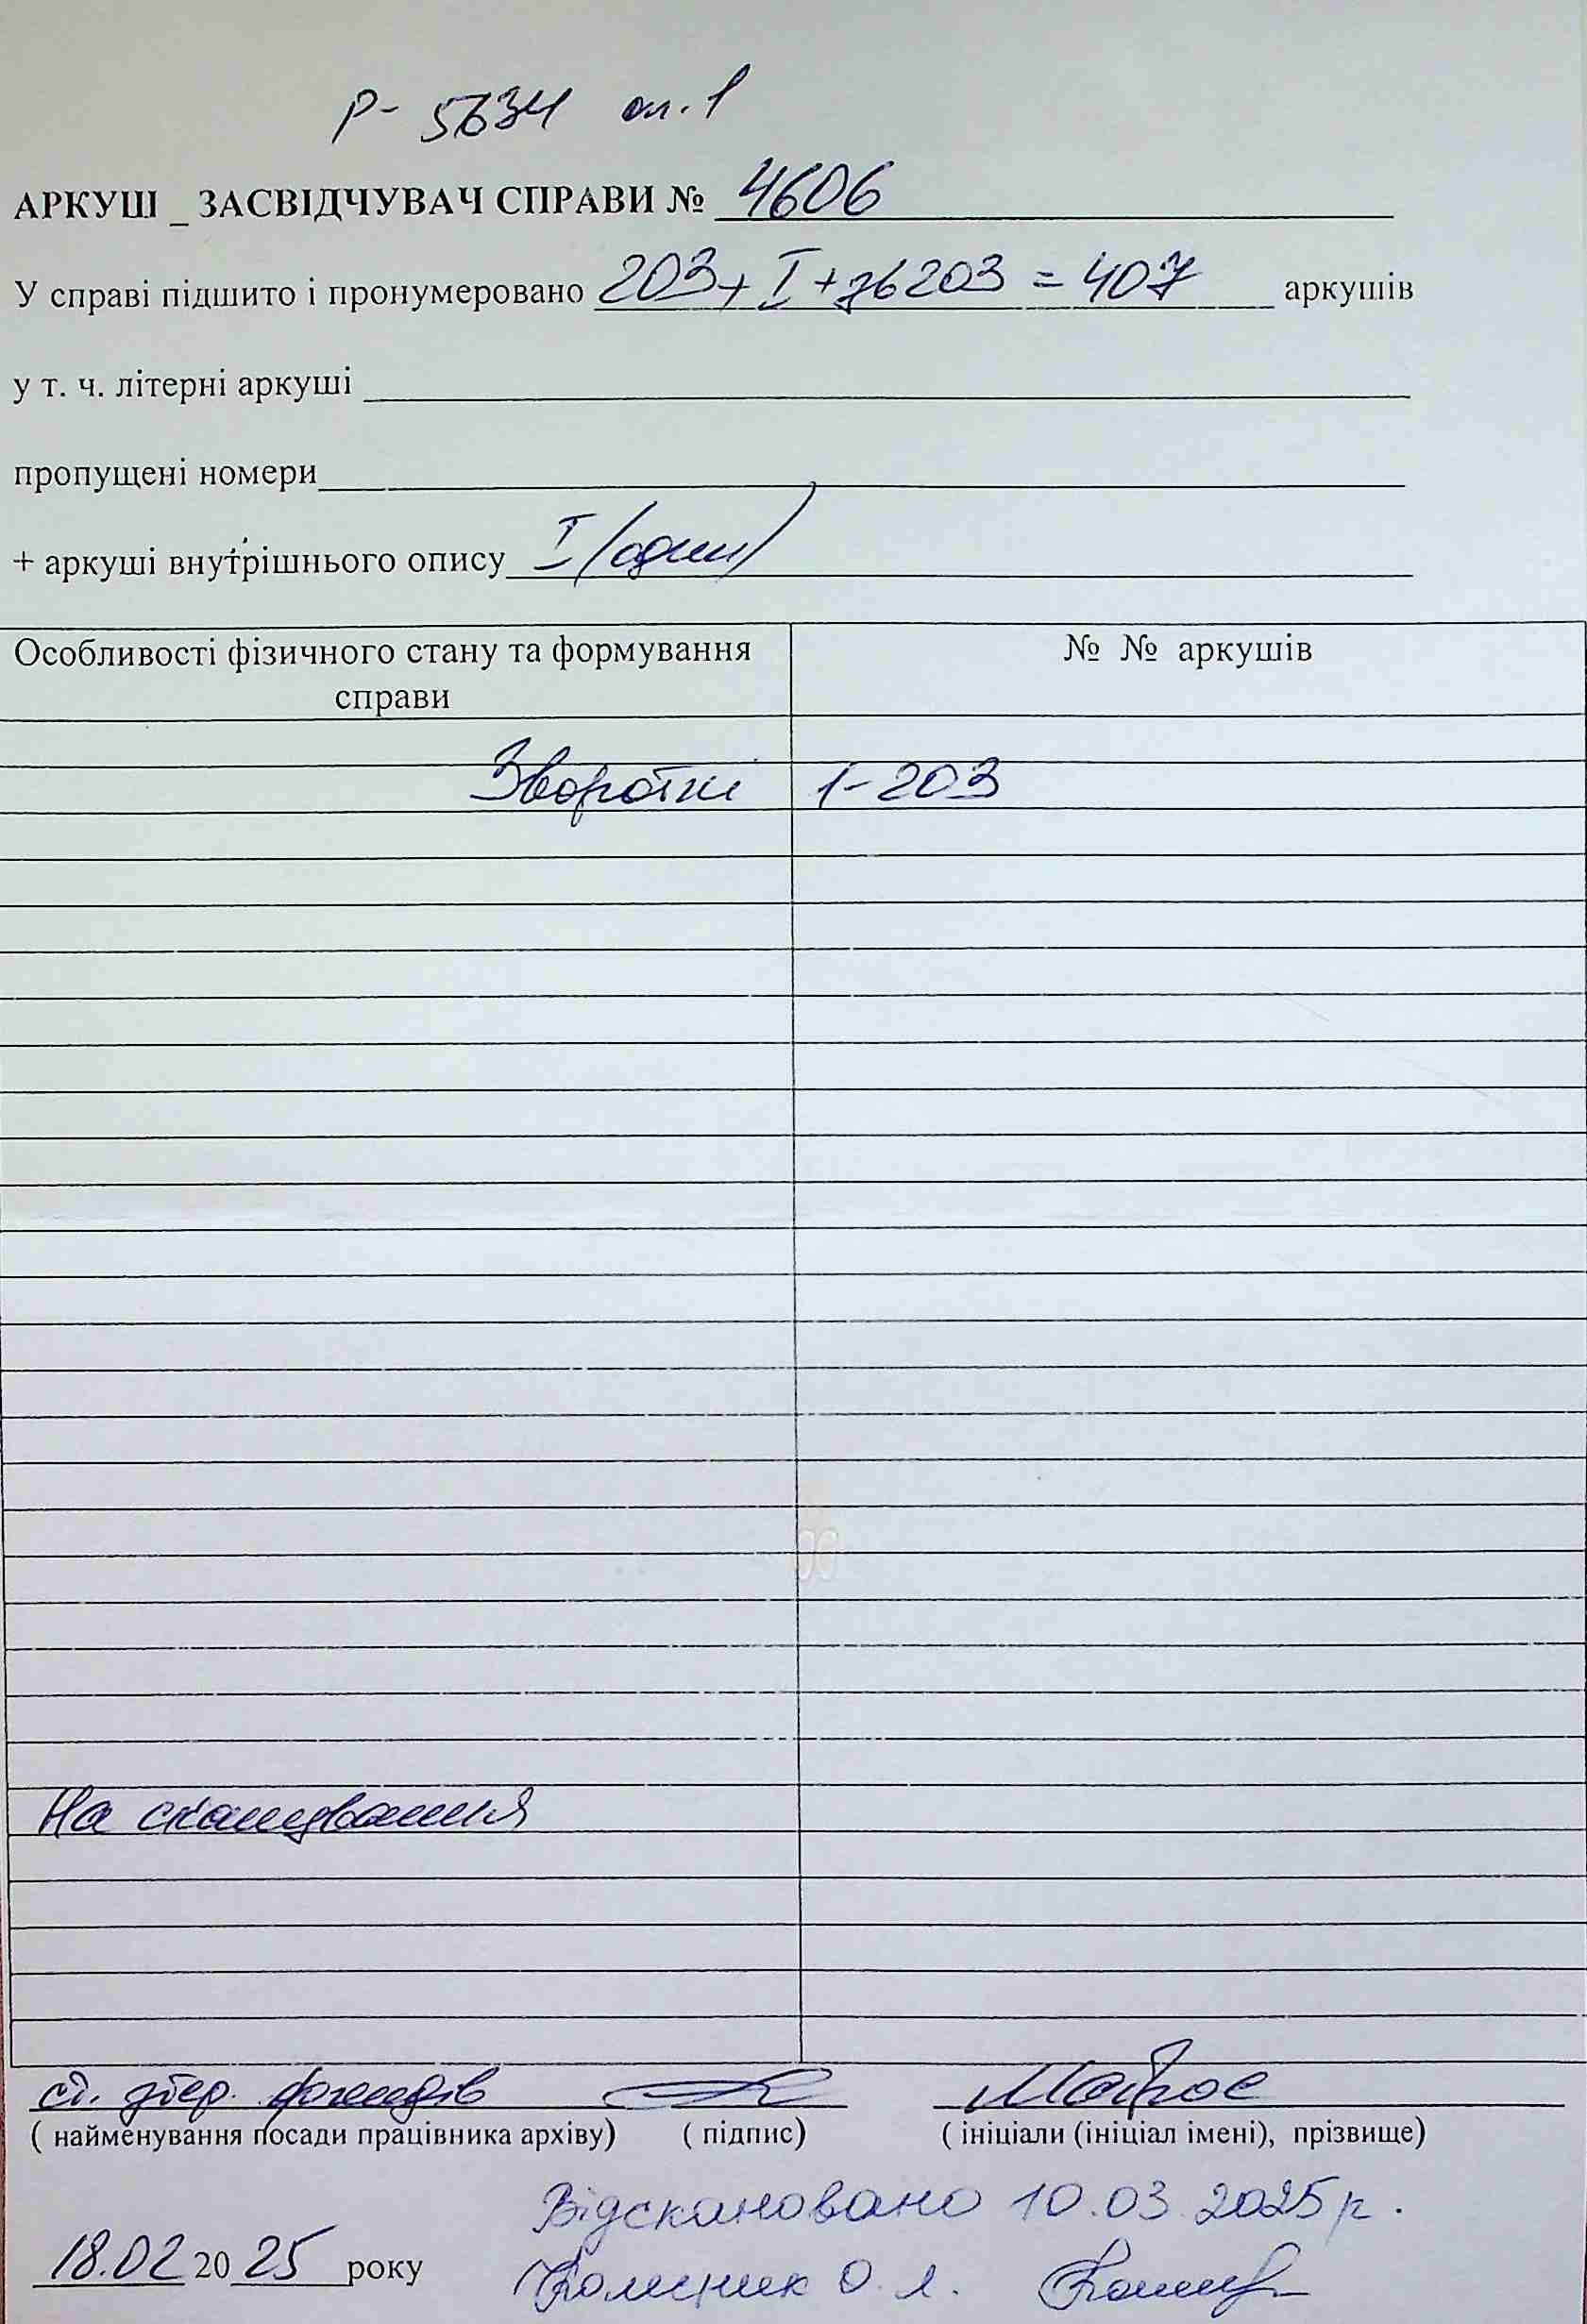 Р- 5634 оп. 1
АРКУШ _ ЗАСВІДЧУВАЧ СПРАВИ № 4606
У справі підшито і пронумеровано 203 + I + зв 203 = 407 аркушів
у т. ч. літерні аркуші
пропущені номери
+ аркуші внутрішнього опису I (один)
Особливості фізичного стану та формування справи № № аркушів
Зворотні 1-203
На сканування
ст. збер. фондів Матрос
( найменування посади працівника архіву) ( підпис) ( ініціали (ініціал імені), прізвище)
Відскановано 10.03.2025 р.
18.02 20 25 року
О. Л.